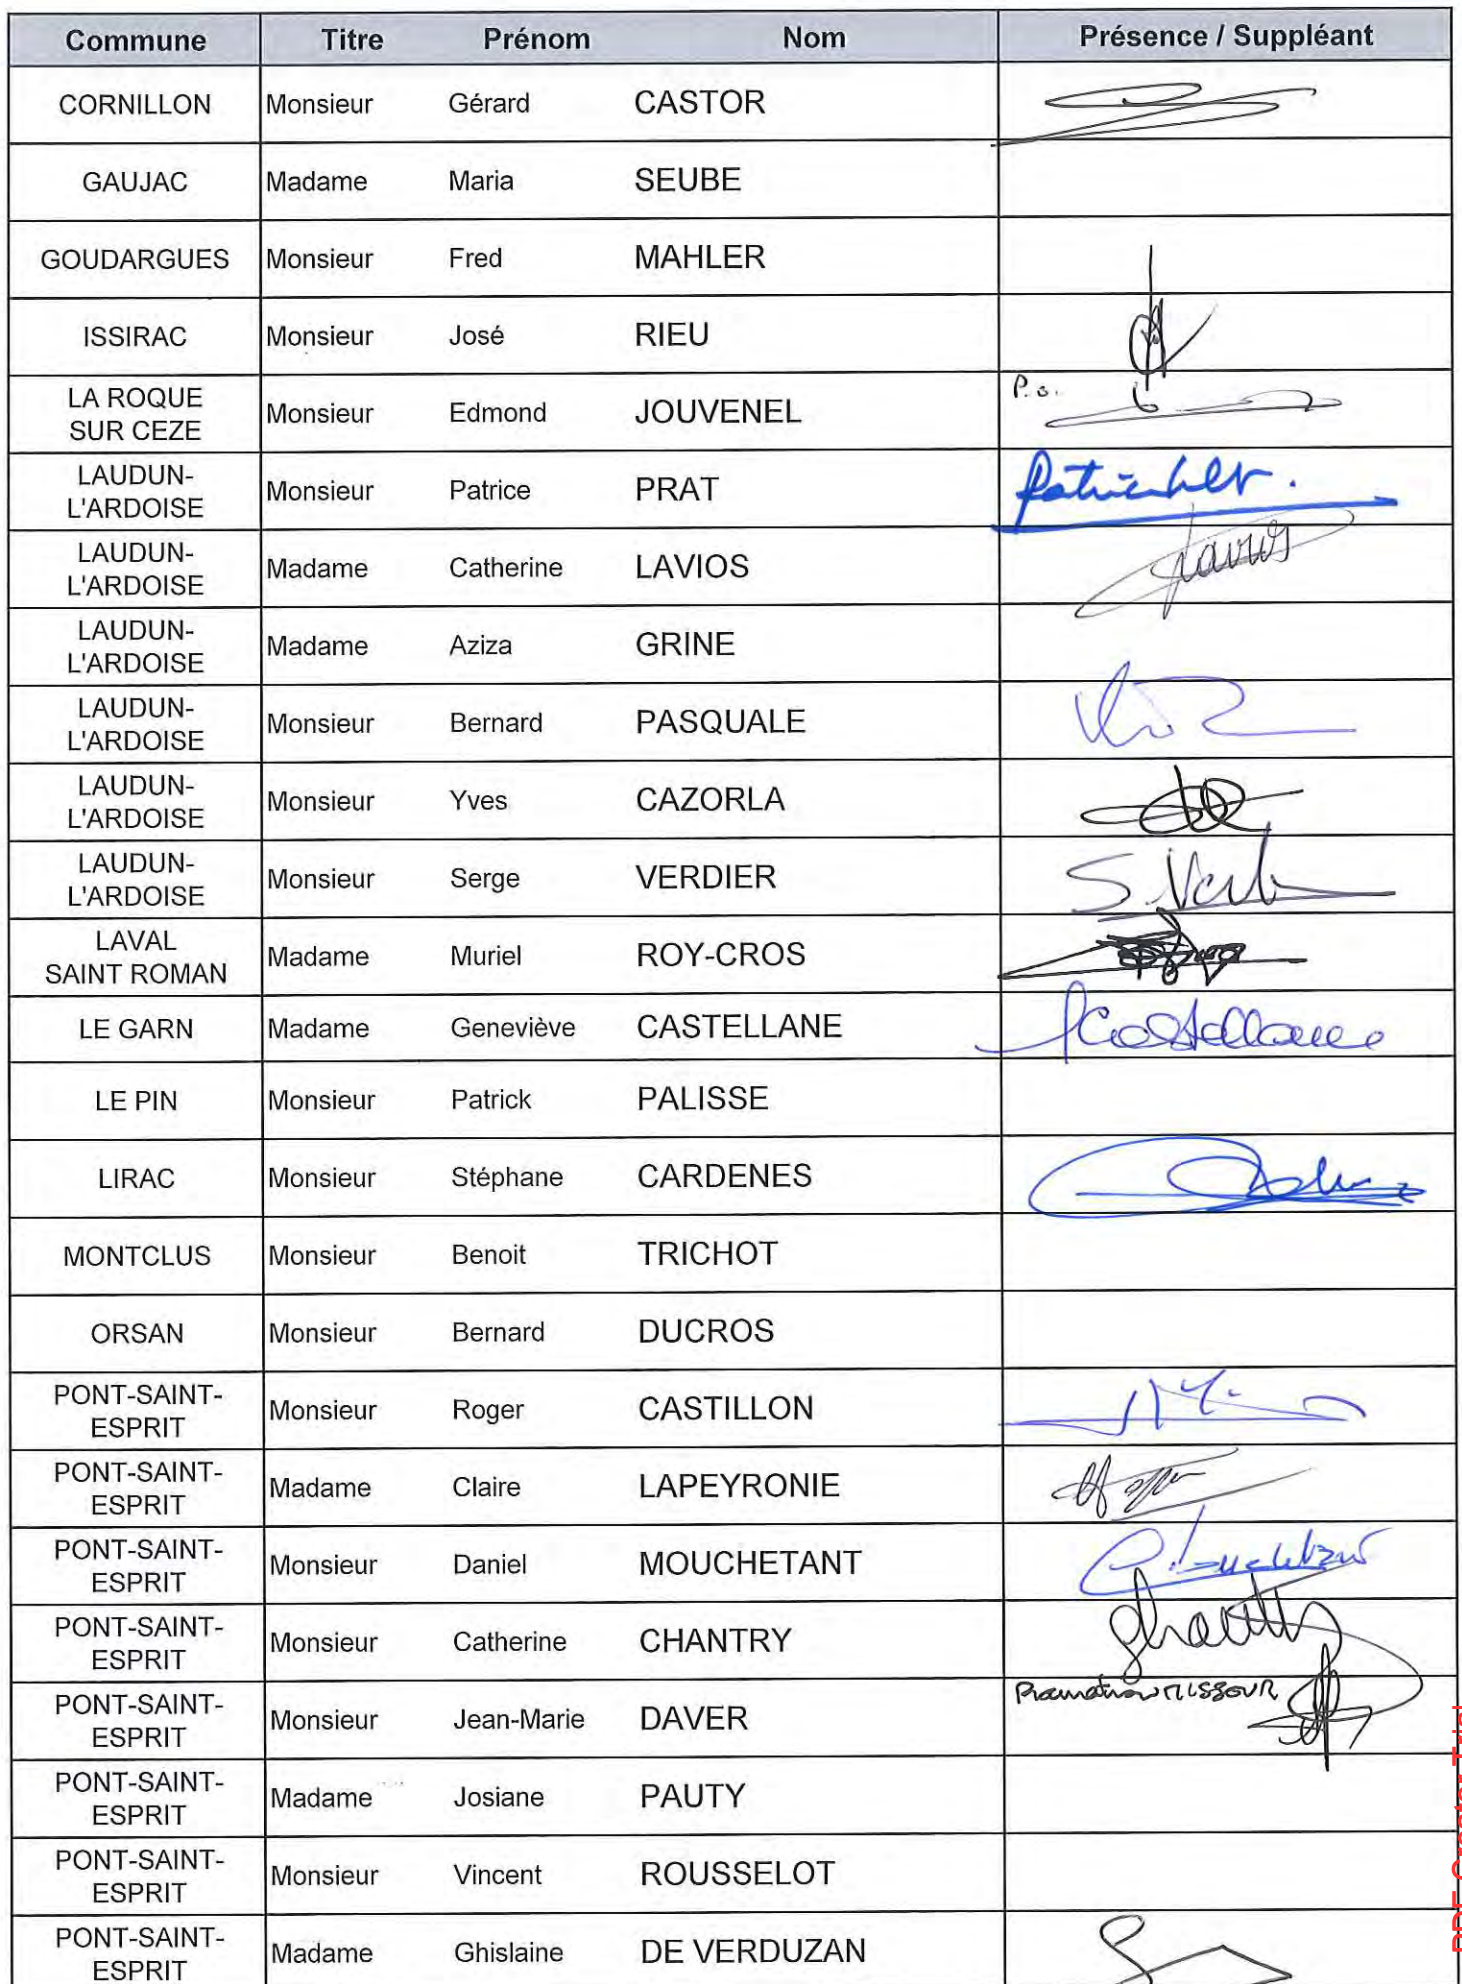 Commune Titre Prénom Nom Présence / Suppléant
CORNILLON Monsieur Gérard CASTOR
GAUJAC Madame Maria SEUBE
GOUDARGUES Monsieur Fred MAHLER
ISSIRAC Monsieur José RIEU
LA ROQUE
SUR CEZE Monsieur Edmond JOUVENEL P.o.
LAUDUN-
L'ARDOISE Monsieur Patrice PRAT
LAUDUN-
L'ARDOISE Madame Catherine LAVIOS
LAUDUN-
L'ARDOISE Madame Aziza GRINE
LAUDUN-
L'ARDOISE Monsieur Bernard PASQUALE
LAUDUN-
L'ARDOISE Monsieur Yves CAZORLA
LAUDUN-
L'ARDOISE Monsieur Serge VERDIER
LAVAL
SAINT ROMAN Madame Muriel ROY-CROS
LE GARN Madame Geneviève CASTELLANE Castellane
LE PIN Monsieur Patrick PALISSE
LIRAC Monsieur Stéphane CARDENES
MONTCLUS Monsieur Benoit TRICHOT
ORSAN Monsieur Bernard DUCROS
PONT-SAINT-
ESPRIT Monsieur Roger CASTILLON
PONT-SAINT-
ESPRIT Madame Claire LAPEYRONIE
PONT-SAINT-
ESPRIT Monsieur Daniel MOUCHETANT
PONT-SAINT-
ESPRIT Monsieur Catherine CHANTRY
PONT-SAINT-
ESPRIT Monsieur Jean-Marie DAVER
PONT-SAINT-
ESPRIT Madame Josiane PAUTY
PONT-SAINT-
ESPRIT Monsieur Vincent ROUSSELOT
PONT-SAINT-
ESPRIT Madame Ghislaine DE VERDUZAN
PDF Creator Trial